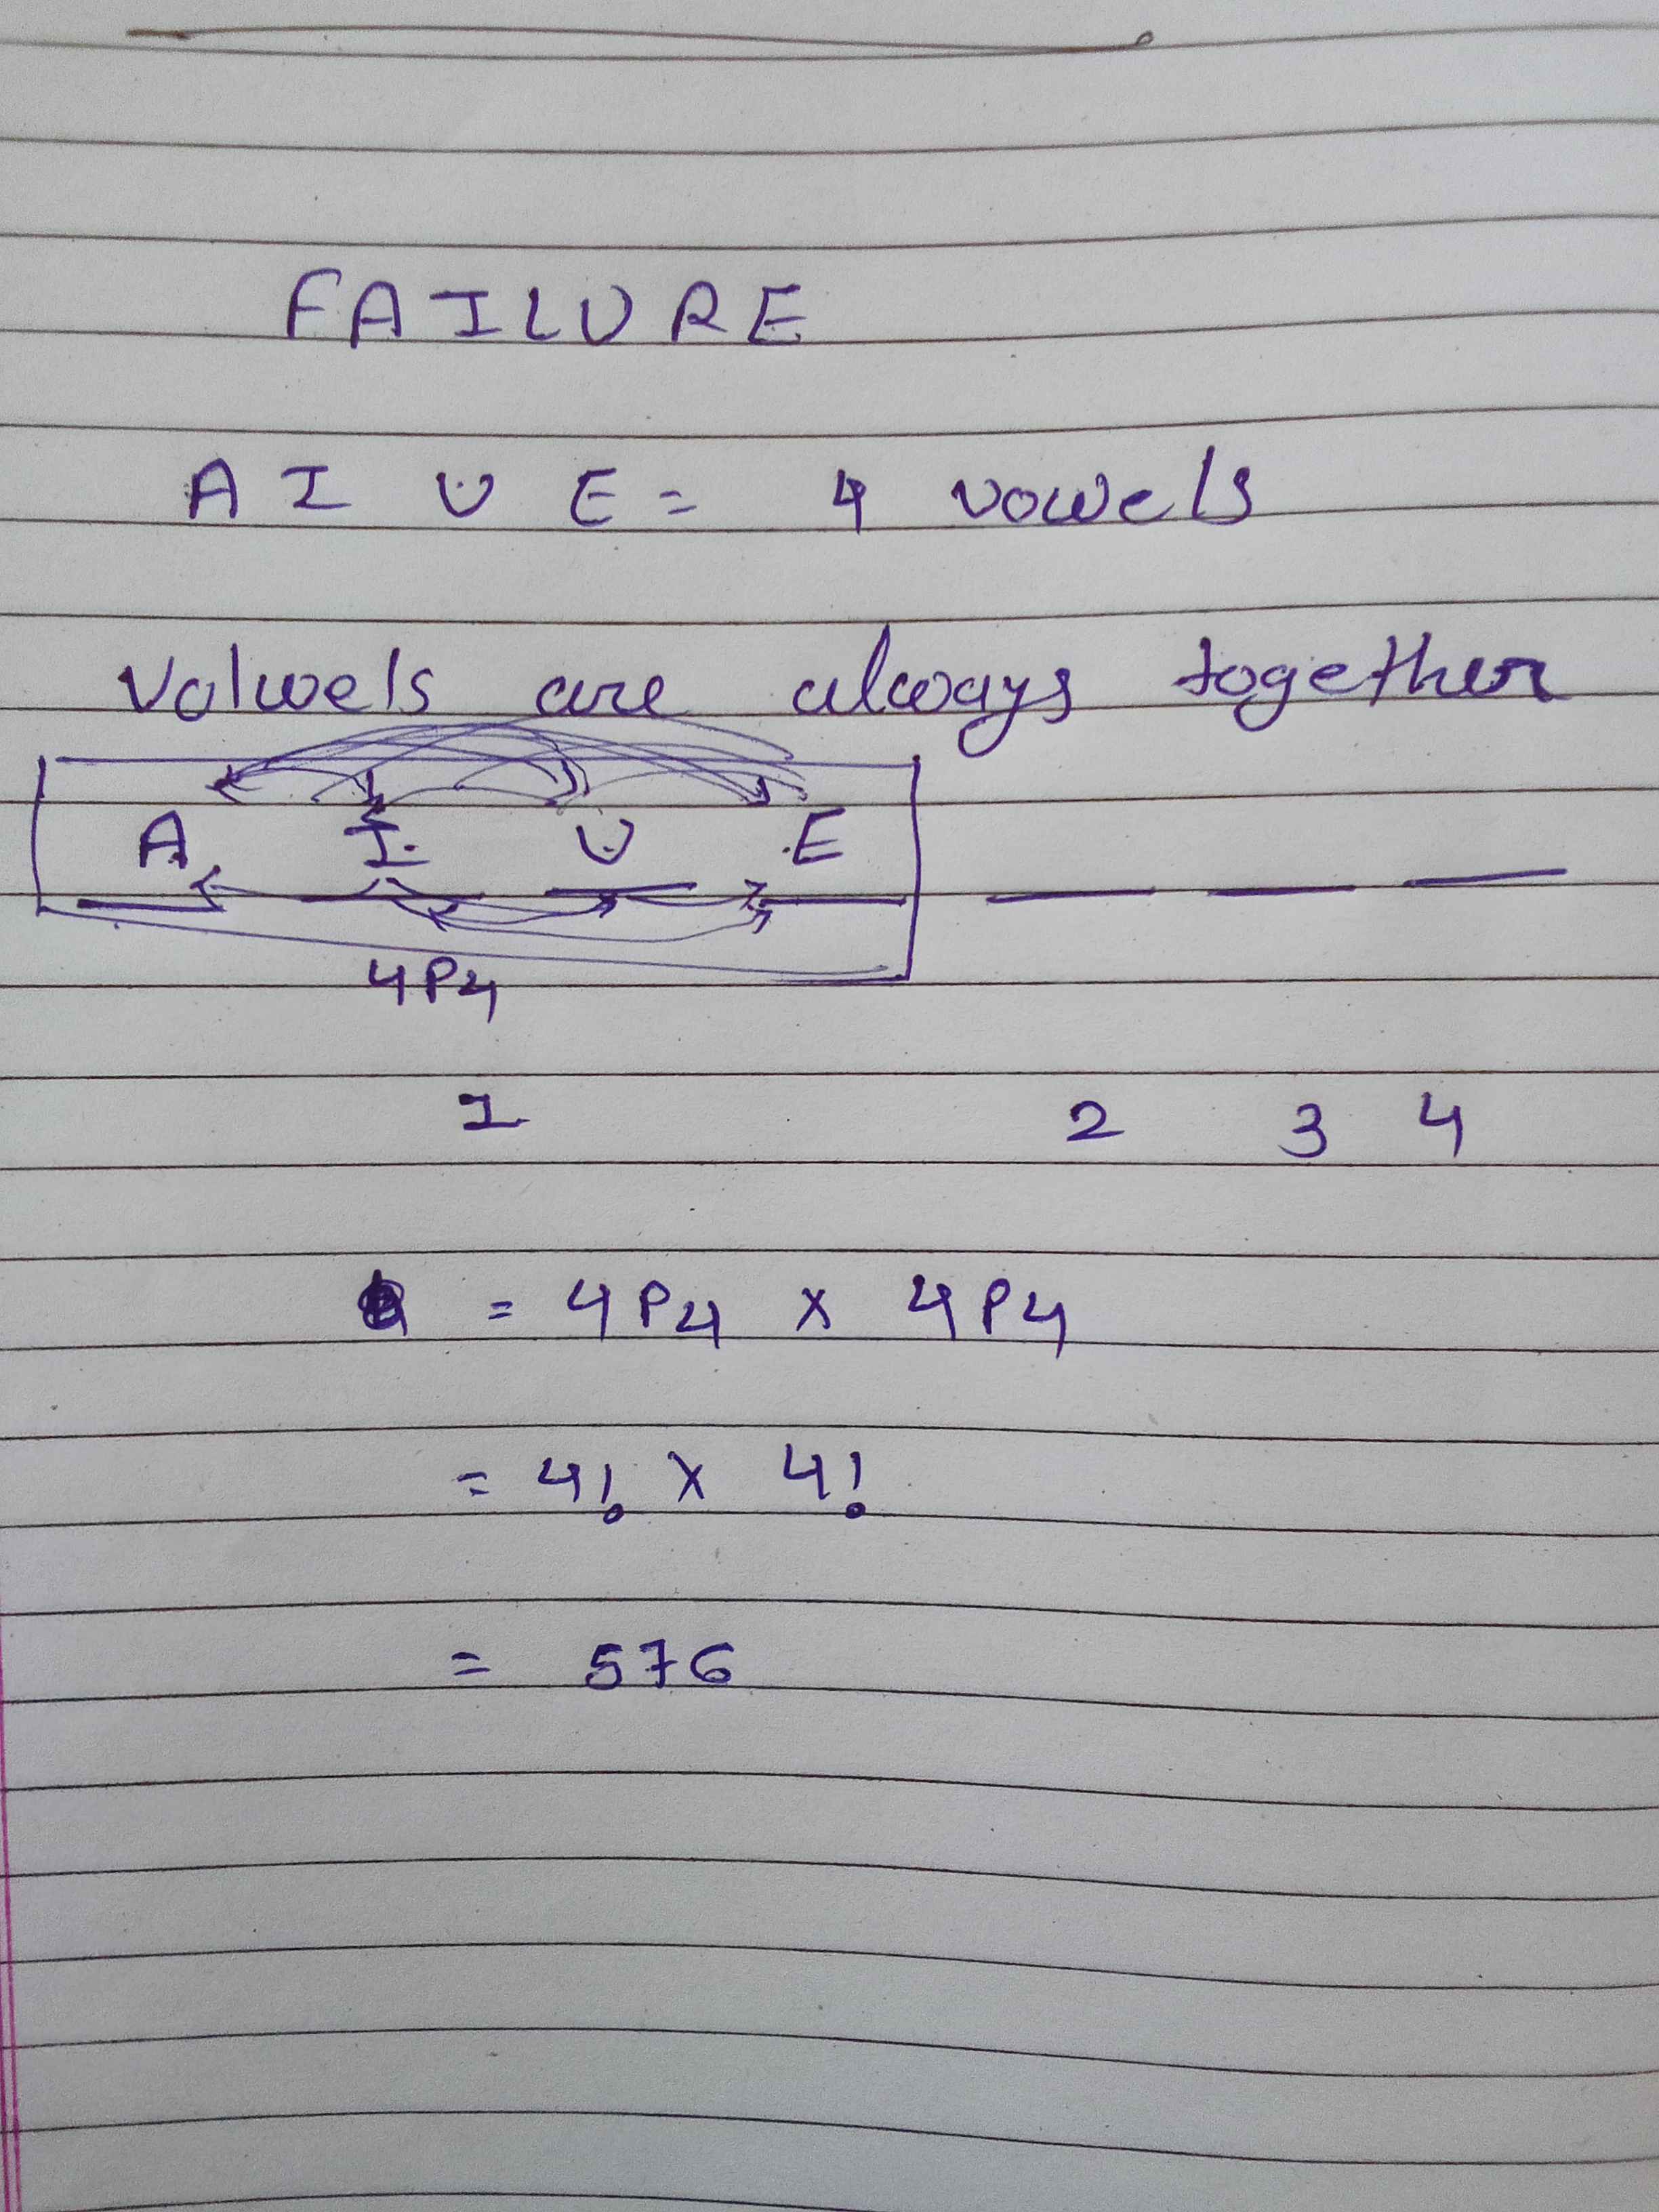 FAILURE
A I U E = 4 vowels
Volwels are always together
A I U E
4P4
1 2 3 4
= 4P4 x 4P4
= 4! x 4!
= 576